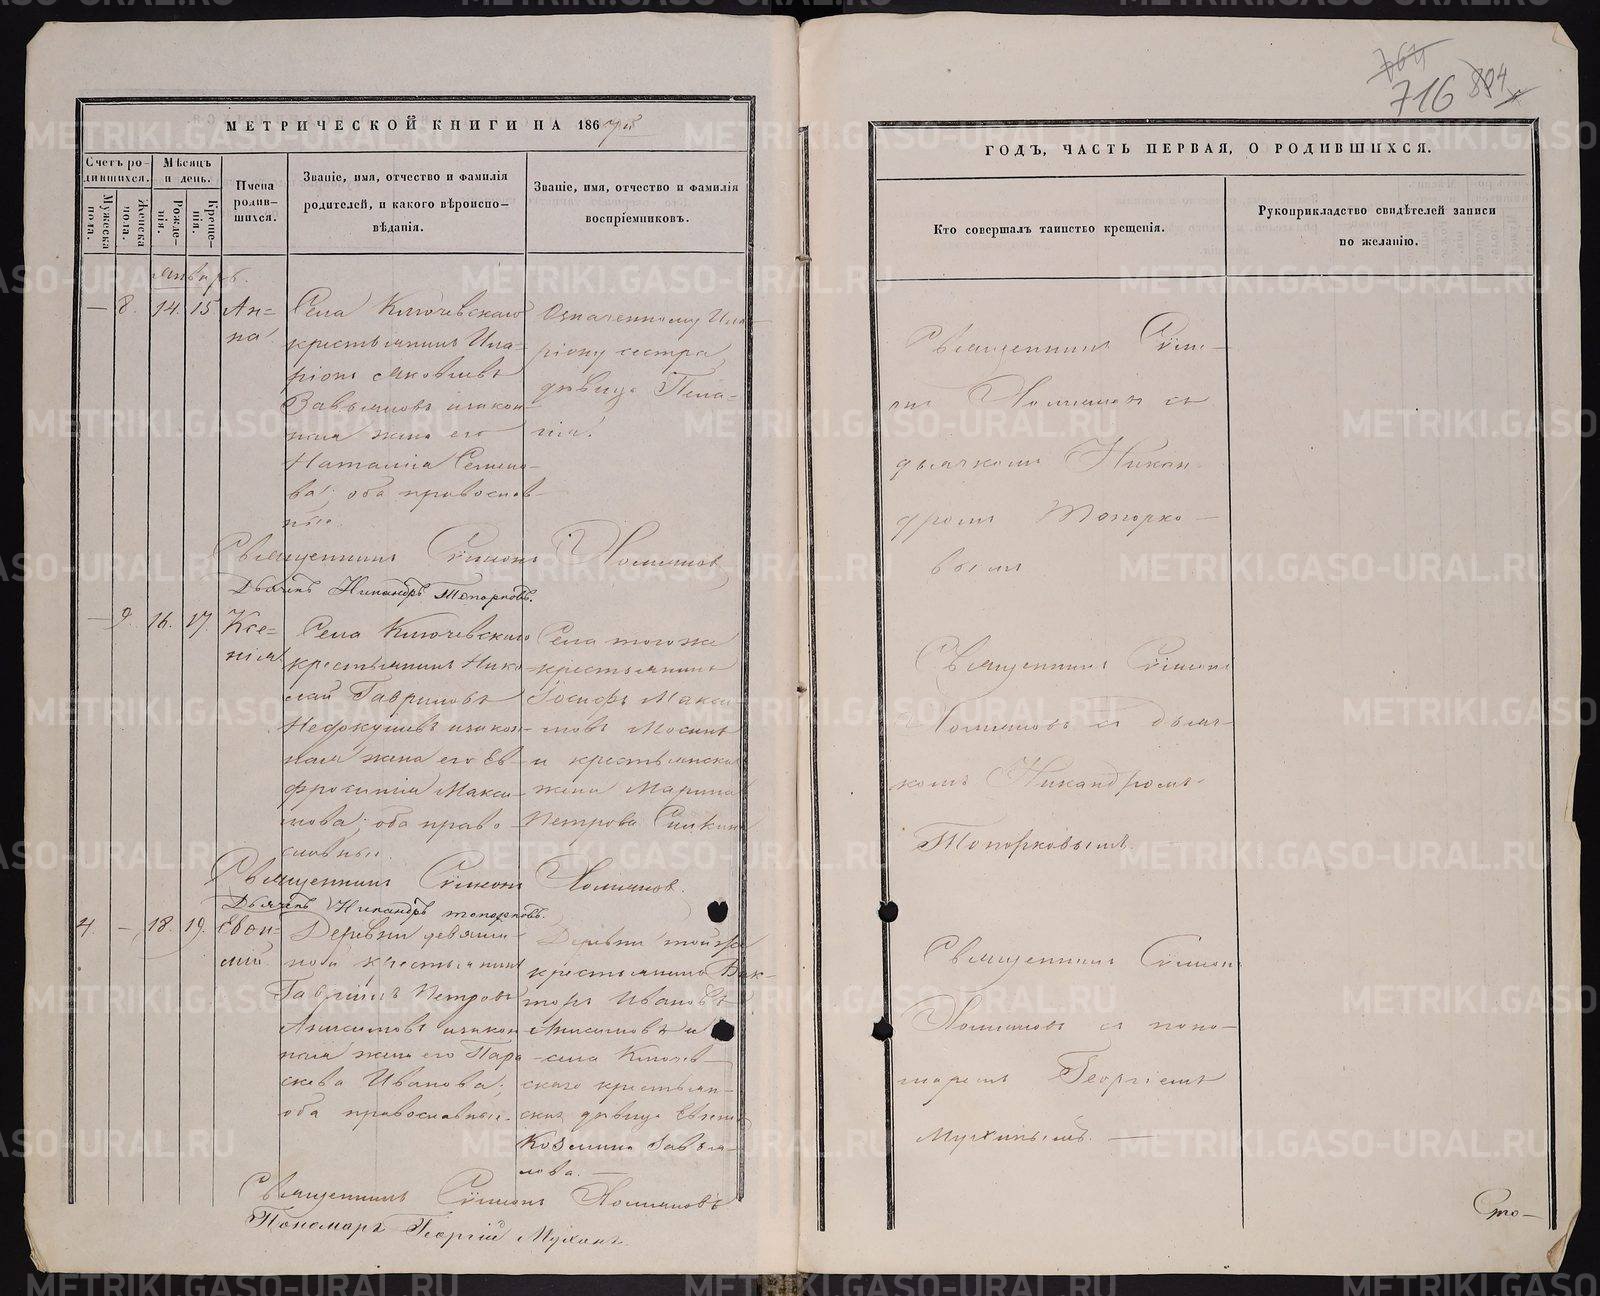 МЕТРИЧЕСКОЙ КНИГИ НА 1867й
Счетъ родившихся.
Мѣсяцъ и день.
Мужеска пола.
Женска пола.
Рожденія.
Крещенія.
Имена родившихся.
Званіе, имя, отчество и фамилія
родителей, и какого вѣроиспо-
вѣданія.
Званіе, имя, отчество и фамилія
воспріемниковъ.
Январь.
— 8. 14. 15 Ан=
на
Села Ключевскаго
крестьянинъ Ила-
ріонъ Яковлевъ
Завьяловъ и закон-
ная жена его
Наталія Семено-
ва; оба православ-
ные.
Означенному Ила-
ріону сестра,
дѣвица Пела-
гія.
Священникъ Сѵмеонъ
Дьячекъ Никандръ Топорковъ.
— 9. 16. 17. Ксе-
нія
Села Ключевскаго
крестьянинъ Нико-
лай Гавриловъ
и закон-
ная жена его Ев-
фросинія Макси-
мова; оба право-
славные.
Села тогоже
крестьянинъ
Іосифъ Макси-
мовъ Мосинъ
и крестьянская
жена Марина
Петрова
Священникъ Сѵмеонъ
Дьячекъ Никандръ Топорковъ.
4. — 18. 19. Евѳи-
мій
Деревни
крестьянинъ
Гавріилъ Петровъ
Анисимовъ и закон-
ная жена его Пара-
скева Иванова;
оба православные.
Деревни тойже
крестьянинъ Вик-
торъ Ивановъ
Анисимовъ и
села Ключев-
скаго крестьян-
ская дѣвица
Козмина Завья-
лова. —
Священникъ Сѵмеонъ
Пономарь Георгій Мухинъ.
764
716 804
ГОДЪ, ЧАСТЬ ПЕРВАЯ, О РОДИВШИХСЯ.
Кто совершалъ таинство крещенія.
Рукоприкладство свидѣтелей записи
по желанію.
Священникъ Сѵме-
онъ съ
дьячкомъ Никан-
дромъ Топорко-
вымъ
Священникъ Сѵмеонъ
съ дьяч-
комъ Никандромъ
Топорковымъ.
Священникъ Сѵмеонъ
съ поно-
маремъ Георгіемъ
Мухинымъ. —
Сто-
METRIKI.GASO-URAL.RU